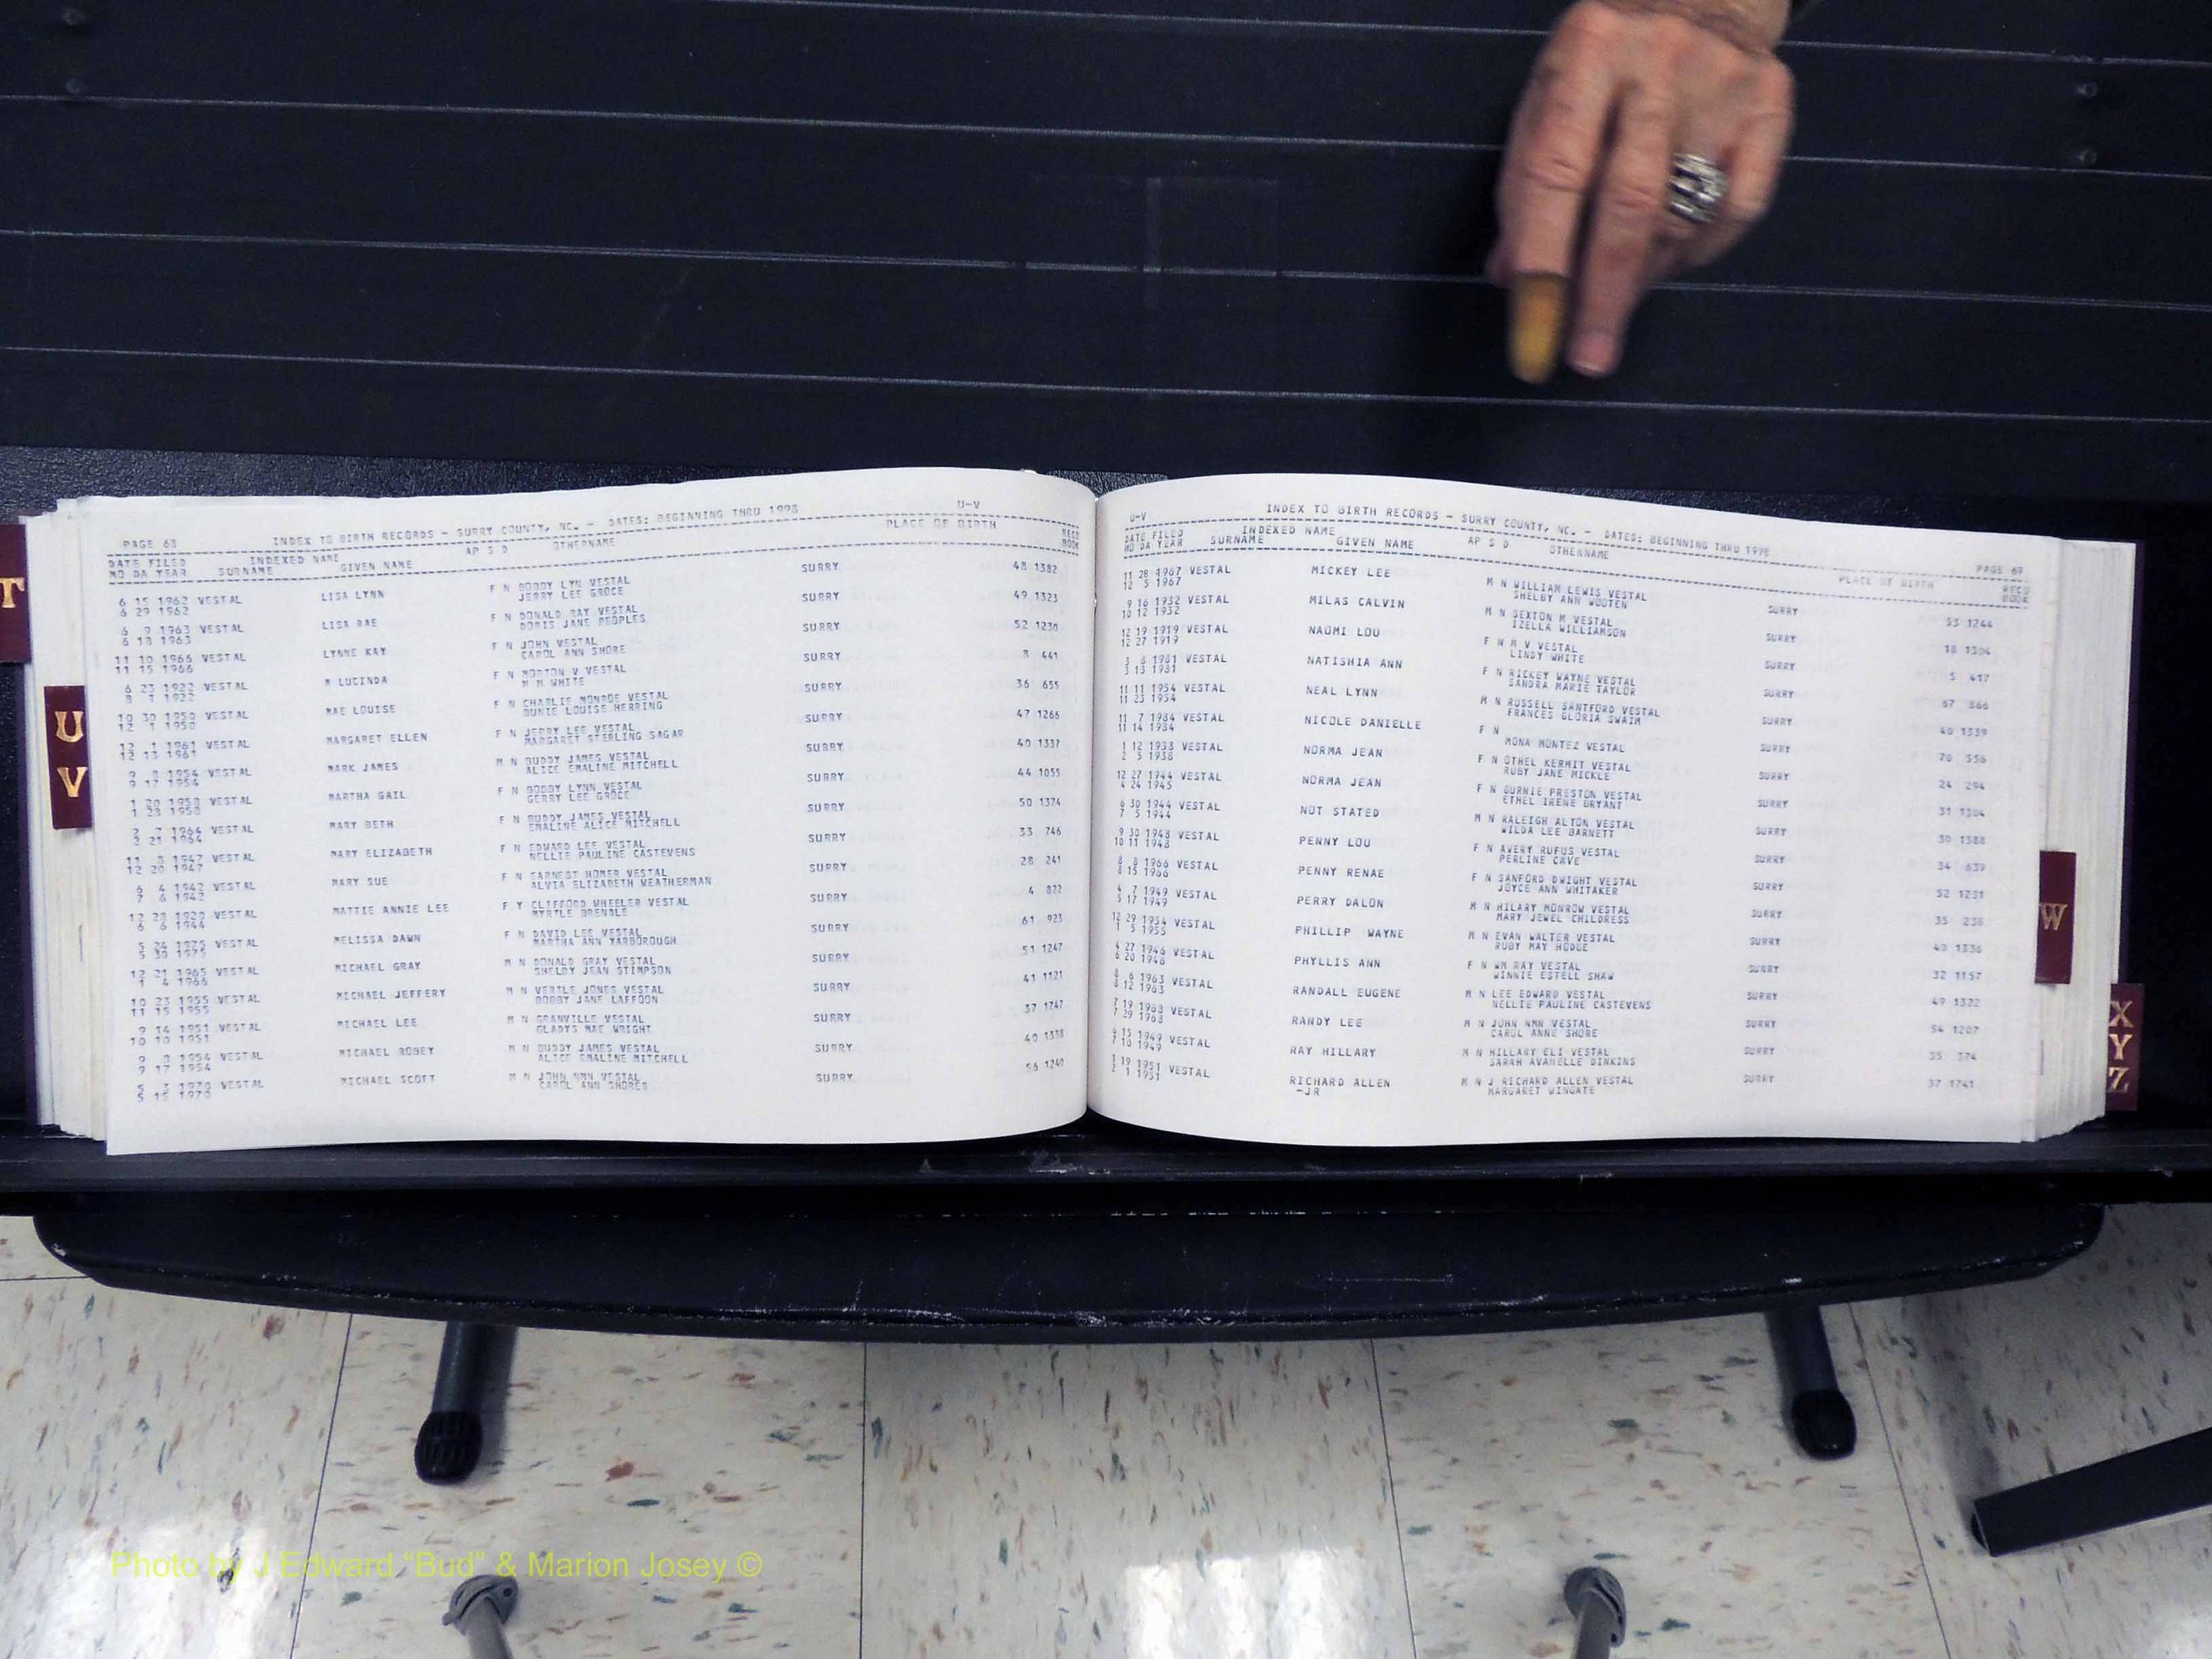 T
U
V
PAGE 68 INDEX TO BIRTH RECORDS - SURRY COUNTY, NC. - DATES: BEGINNING THRU 1998 U-V
DATE FILED INDEXED NAME AP S D OTHERNAME PLACE OF BIRTH RECD
MO DA YEAR SURNAME GIVEN NAME BOOK
6 15 1962 VESTAL LISA LYNN F N BOBBY LYN VESTAL SURRY 48 1382
6 29 1962 JERRY LEE GROCE
6 9 1963 VESTAL LISA RAE F N DONALD RAY VESTAL SURRY 49 1323
6 18 1963 DORIS JANE PEOPLES
11 10 1966 VESTAL LYNNE KAY F N JOHN VESTAL SURRY 52 1230
11 15 1966 CAROL ANN SHORE
6 23 1922 VESTAL M LUCINDA F N MORTON V VESTAL SURRY 8 441
8 1 1922 M M WHITE
10 30 1950 VESTAL MAE LOUISE F N CHARLIE MONROE VESTAL SURRY 36 655
12 1 1950 DUNIE LOUISE HERRING
12 1 1961 VESTAL MARGARET ELLEN F N JERRY LEE VESTAL SURRY 47 1266
12 13 1961 MARGARET STERLING SAGAR
9 8 1954 VESTAL MARK JAMES M N BUDDY JAMES VESTAL SURRY 40 1337
9 17 1954 ALICE EMALINE MITCHELL
1 20 1958 VESTAL MARTHA GAIL F N BOBBY LYNN VESTAL SURRY 44 1055
1 28 1958 GERRY LEE GROCE
2 7 1964 VESTAL MARY BETH F N BUDDY JAMES VESTAL SURRY 50 1374
2 21 1964 EMALINE ALICE MITCHELL
11 8 1947 VESTAL MARY ELIZABETH F N EDWARD LEE VESTAL SURRY 33 746
12 20 1947 NELLIE PAULINE CASTEVENS
6 4 1942 VESTAL MARY SUE F N EARNEST HOMER VESTAL SURRY 28 241
7 6 1942 ALVIA ELIZABETH WEATHERMAN
12 28 1920 VESTAL MATTIE ANNIE LEE F Y CLIFFORD WHEELER VESTAL SURRY 4 822
6 6 1944 MYRTLE BRENDLE
5 24 1975 VESTAL MELISSA DAWN F N DAVID LEE VESTAL SURRY 61 923
5 30 1975 MARTHA ANN YARBOROUGH
12 21 1965 VESTAL MICHAEL GRAY M N DONALD GRAY VESTAL SURRY 51 1247
1 4 1966 SHELBY JEAN STIMPSON
10 23 1955 VESTAL MICHAEL JEFFERY M N VERTLE JONES VESTAL SURRY 41 1121
11 15 1955 BOBBY JANE LAFFOON
9 14 1951 VESTAL MICHAEL LEE M N GRANVILLE VESTAL SURRY 37 1747
10 10 1951 GLADYS MAE WRIGHT
9 8 1954 VESTAL MICHAEL ROBEY M N BUDDY JAMES VESTAL SURRY 40 1338
9 17 1954 ALICE EMALINE MITCHELL
5 3 1970 VESTAL MICHAEL SCOTT M N JOHN NMN VESTAL SURRY 56 1240
5 15 1970 CAROL ANN SHORES
U-V INDEX TO BIRTH RECORDS - SURRY COUNTY, NC. - DATES: BEGINNING THRU 1998 PAGE 69
DATE FILED INDEXED NAME AP S D OTHERNAME PLACE OF BIRTH RECD
MO DA YEAR SURNAME GIVEN NAME BOOK
11 28 1967 VESTAL MICKEY LEE M N WILLIAM LEWIS VESTAL SURRY 53 1244
12 5 1967 SHELBY ANN WOOTEN
9 16 1932 VESTAL MILAS CALVIN M N SEXTON M VESTAL SURRY 18 1304
10 12 1932 IZELLA WILLIAMSON
12 19 1919 VESTAL NAOMI LOU F N M V VESTAL SURRY 5 417
12 27 1919 LINDY WHITE
3 8 1981 VESTAL NATISHIA ANN F N RICKEY WAYNE VESTAL SURRY 67 366
3 13 1981 SANDRA MARIE TAYLOR
11 11 1954 VESTAL NEAL LYNN M N RUSSELL SANTFORD VESTAL SURRY 40 1339
11 23 1954 FRANCES GLORIA SWAIM
11 7 1984 VESTAL NICOLE DANIELLE F N SURRY 70 556
11 14 1984 MONA MONTEZ VESTAL
1 12 1938 VESTAL NORMA JEAN F N OTHEL KERMIT VESTAL SURRY 24 294
2 5 1938 RUBY JANE MICKLE
12 27 1944 VESTAL NORMA JEAN F N GURNIE PRESTON VESTAL SURRY 31 1304
4 24 1945 ETHEL IRENE BRYANT
6 30 1944 VESTAL NOT STATED M N RALEIGH ALTON VESTAL SURRY 30 1388
7 5 1944 WILDA LEE BARNETT
9 30 1948 VESTAL PENNY LOU F N AVERY RUFUS VESTAL SURRY 34 639
10 11 1948 PERLINE CAVE
8 8 1966 VESTAL PENNY RENAE F N SANFORD DWIGHT VESTAL SURRY 52 1231
8 15 1966 JOYCE ANN WHITAKER
4 7 1949 VESTAL PERRY DALON M N HILARY MONROW VESTAL SURRY 35 238
5 17 1949 MARY JEWEL CHILDRESS
12 29 1954 VESTAL PHILLIP WAYNE M N EVAN WALTER VESTAL SURRY 40 1336
1 5 1955 RUBY MAY HODGE
4 27 1946 VESTAL PHYLLIS ANN F N WM RAY VESTAL SURRY 32 1157
6 20 1946 WINNIE ESTELL SHAW
8 6 1963 VESTAL RANDALL EUGENE M N LEE EDWARD VESTAL SURRY 49 1322
8 12 1963 NELLIE PAULINE CASTEVENS
7 19 1968 VESTAL RANDY LEE M N JOHN NMN VESTAL SURRY 54 1207
7 29 1968 CAROL ANNE SHORE
6 15 1949 VESTAL RAY HILLARY M N HILLARY ELI VESTAL SURRY 35 374
7 10 1949 SARAH AVANELLE DINKINS
1 19 1951 VESTAL RICHARD ALLEN M N J RICHARD ALLEN VESTAL SURRY 37 1741
2 1 1951 -JR MARGARET WINGATE
W
X
Y
Z
Photo by J Edward “Bud” & Marion Josey ©